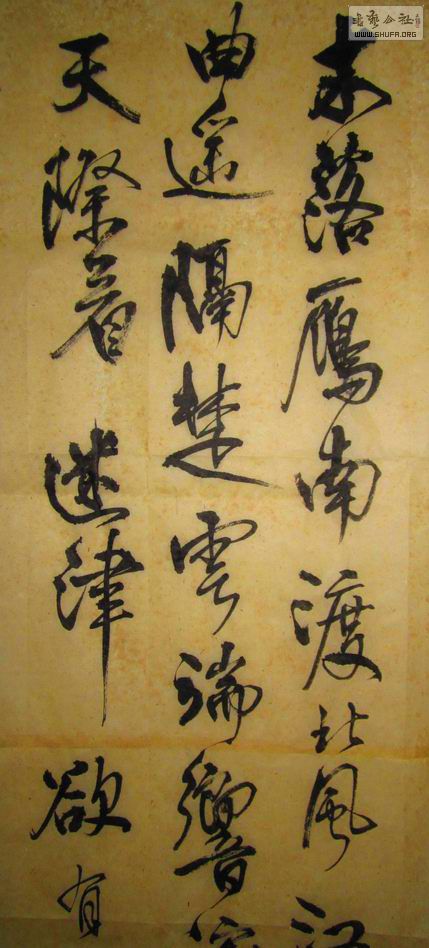 书艺公社
WWW.SHUFA.ORG
木落鴈南渡北風江
曲遥隔楚雲端響
天際看迷津欲有